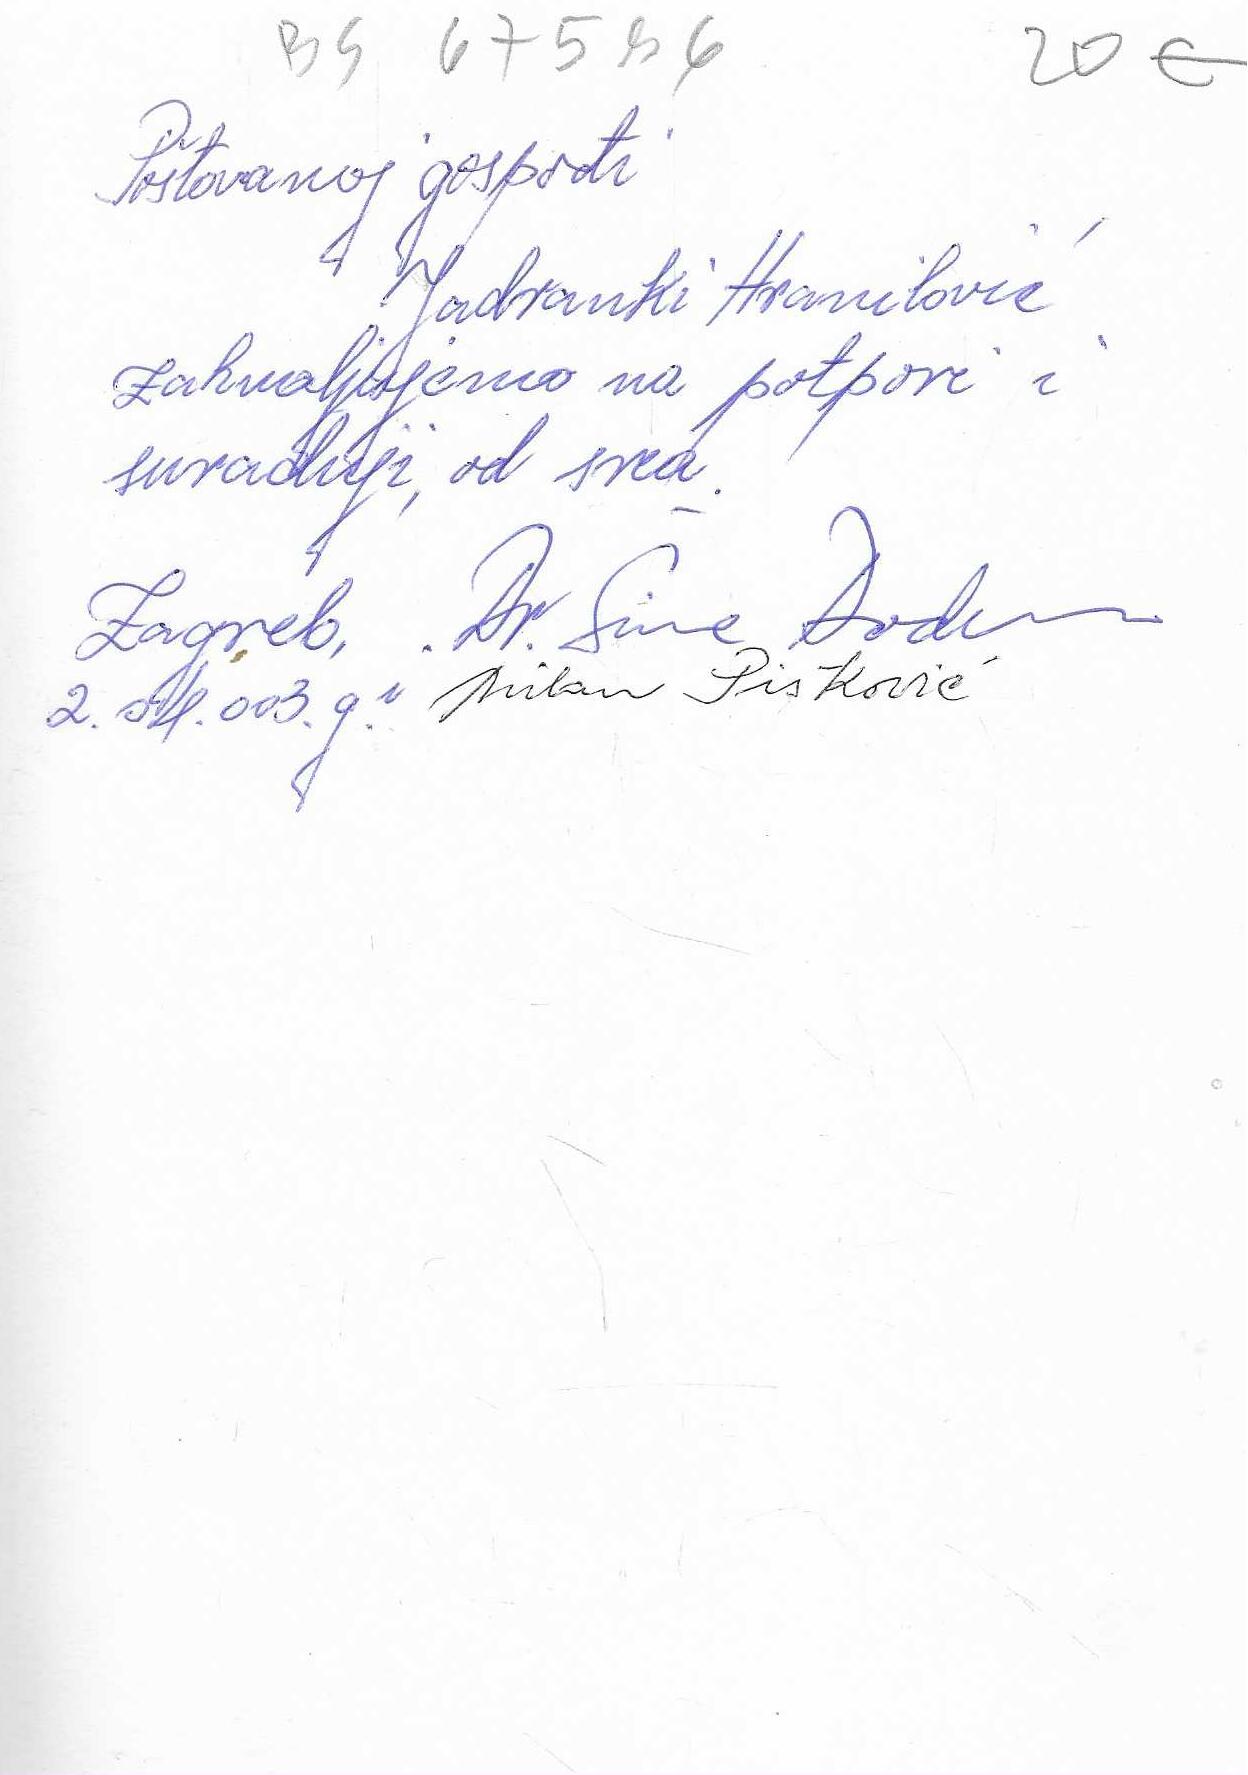 20 €
Poštovanoj gospođi
Jadranki Hranilović
zahvaljujemo na potpori i
suradnji, od srca.
Zagreb, Dr. Šime
2. 04. 003. g. Milan Pisković